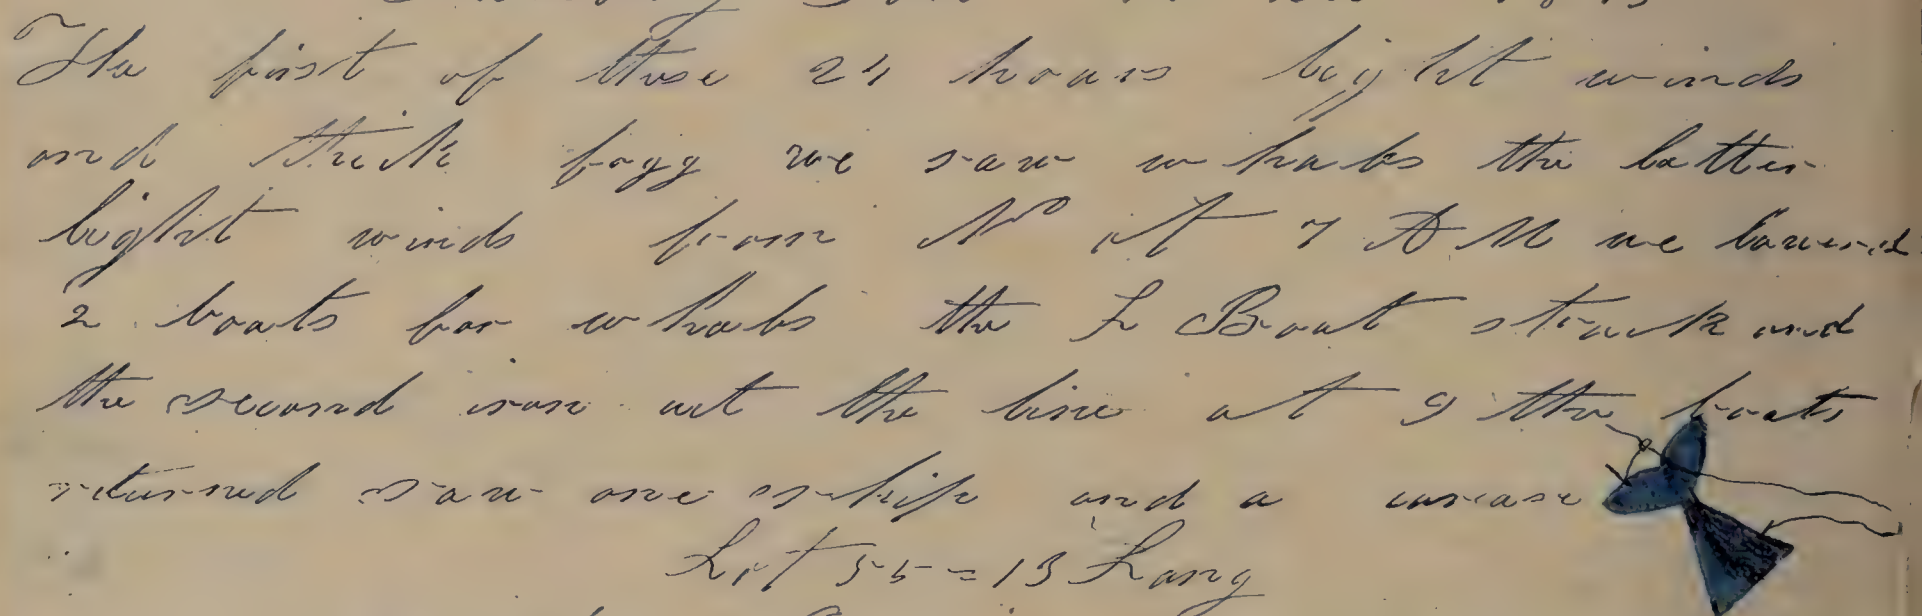 The first of these 24 hours light winds
and thick fogg we saw whals the latter
light winds from N at 7 A M we lowered
2 boats for whals the L Boat struck and
the second iron cut the line at 9 the boats
returned saw one ship and a
Lat 55=13 Long